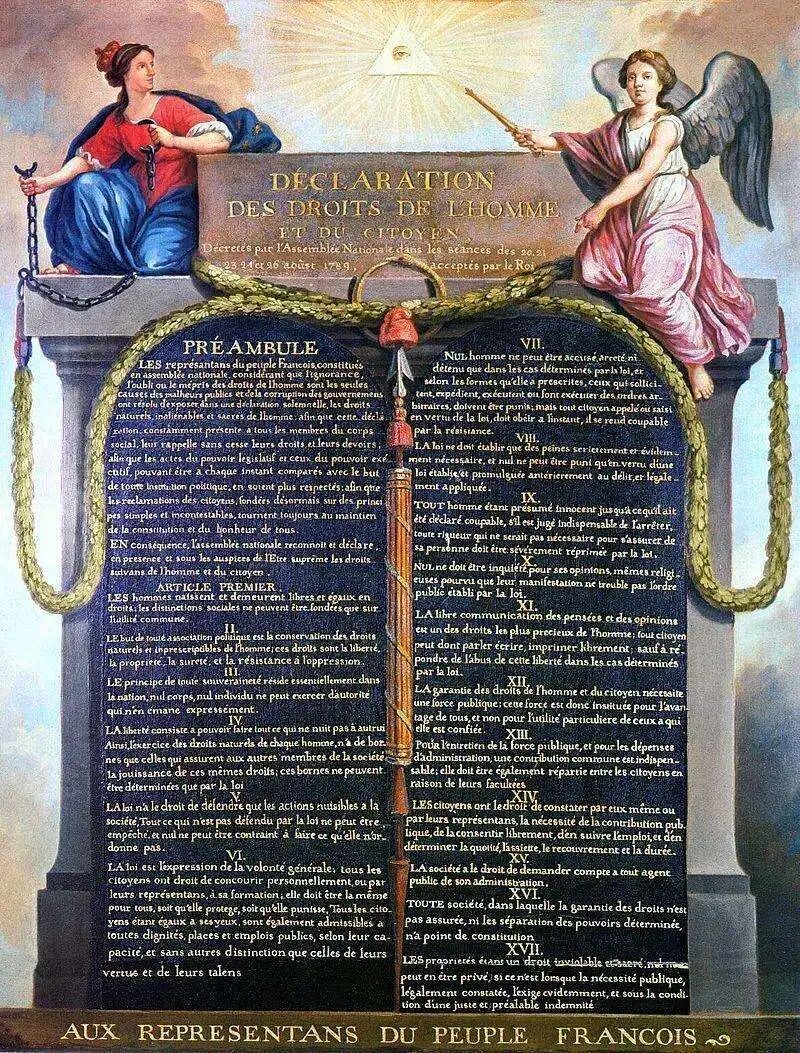 DÉCLARATION
DES DROITS DE L'HOMME
ET DU CITOYEN,
Décretés par l'Assemblée Nationale dans les séances des 20. 21
23. 24 et 26 aoust 1789, acceptés par le Roi
PRÉAMBULE
LES représantans du peuple Francois, constitués
en assemblée nationale, considérant que l'ignorance,
l'oubli ou le mépris des droits de l'homme sont les seules
causes des malheurs publics et de la corruption des gouvernemens
ont résolu d'exposer dans une déclaration solemnelle, les droits
naturels, inaliénables et sacrés de l'homme; afin que cette décla
ration, constamment présente a tous les membres du corps
social, leur rappelle sans cesse leurs droits et leurs devoirs,
afin que les actes du pouvoir législatif et ceux du pouvoir exé
cutif, pouvant être a chaque instant comparés avec le but
de toute institution politique, en soient plus respectés; afin que
les réclamations des citoyens, fondées désormais sur des princi
pes simples et incontestables, tournent toujours au maintien
de la constitution et du bonheur de tous.
EN conséquence, l'assemblée nationale reconnoit et déclare,
en présence et sous les auspices de l'Etre suprême les droits
suivans de l'homme et du citoyen.
ARTICLE PREMIER.
LES hommes naissent et demeurent libres et égaux en
droits; les distinctions sociales ne peuvent être fondées que sur
l'utilité commune.
II.
LE but de toute association politique est la conservation des droits
naturels et inprescriptibles de l'homme; ces droits sont la liberté,
la proprieté, la sureté, et la résistance à l'oppression.
III.
LE principe de toute souveraineté réside essentiellement dans
la nation, nul corps, nul individu ne peut exercer d'autorité
qui n'en émane expressément.
IV.
LA liberté consiste a pouvoir faire tout ce qui ne nuit pas à autrui
Ainsi, l'exercice des droits naturels de chaque homme, n'a de bor
nes que celles qui assurent aux autres membres de la société
la jouissance de ces mêmes droits; ces bornes ne peuvent
être déterminées que par la loi
V.
LA loi n'a le droit de défendre que les actions nuisibles a la
société, Tout ce qui n'est pas défendu par la loi ne peut être
empêché, et nul ne peut être contraint à faire ce qu'elle n'or-
donne pas.
VI.
LA loi est l'expression de la volonté générale; tous les
citoyens ont droit de concourir personnellement, ou par
leurs représentans, à sa formation; elle doit être la même
pour tous, soit qu'elle protege, soit qu'elle punisse, Tous les cito
yens étant égaux a ses yeux, sont également admissibles a
toutes dignités, places et emplois publics, selon leur ca-
pacité, et sans autres distinction que celles de leurs
vertus et de leurs talens
VII.
NUL homme ne peut être accusé, arreté, ni
détenu que dans les cas déterminés par la loi, et
selon les formes qu'elle a prescrites, ceux qui sollici-
tent, expédient, exécutent ou font exécuter des ordres ar-
bitraires, doivent être punis; mais tout citoyen appelé ou saisi
en vertu de la loi, doit obéir a l'instant, il se rend coupable
par la résistance.
VIII.
LA loi ne doit établir que des peines strictement et évidem-
ment nécessaire, et nul ne peut être puni qu'en vertu d'une
loi établie, et promulguée antérierement au délit, et légale-
ment appliquée.
IX.
TOUT homme étant présumé innocent jusqu'a ce qu'il ait
été déclaré coupable, s'il est jugé indispensable de l'arrêter,
toute rigueur qui ne serait pas nécessaire pour s'assurer de
sa personne doit être sévèrement réprimée par la loi.
X.
NUL ne doit être inquiété pour ses opinions, mêmes religi-
euses pourvu que leur manifestation ne trouble pas l'ordre
public établi par la loi.
XI.
LA libre communication des pensées et des opinions
est un des droits les plus precieux de l'homme; tout citoyen
peut dont parler écrire, imprimer librement; sauf a ré-
pondre de l'abus de cette liberté dans les cas déterminés
par la loi.
XII.
LA garantie des droits de l'homme et du citoyen nécessite
une force publique; cette force est donc instituée pour l'avan-
tage de tous, et non pour l'utilité particuliere de ceux a qui
elle est confiée.
XIII.
POUR l'entretien de la force publique, et pour les dépenses
d'administration, une contribution commune est indispen-
sable; elle doit être également répartie entre les citoyens en
raison de leurs facultées
XIV.
LES citoyens ont le droit de constater par eux même ou
par leurs représentans, la nécessité de la contribution pub-
lique, de la consentir librement, d'en suivre l'emploi, et d'en
déterminer la quotité, l'assiette, le recouvrement et la durée.
XV.
LA société a le droit de demander compte a tout agent
public de son administration.
XVI.
TOUTE société, dans laquelle la garantie des droits n'est
pas assurée, ni les séparation des pouvoirs déterminée,
n'a point de constitution
XVII.
LES proprietés étans un droit inviolable et sacré, nul ne
peut en être privé, si ce n'est lorsque la nécessité publique,
légalement constatée, l'exige evidemment, et sous la condi-
tion d'une juste et préalable indemnité
AUX REPRESENTANS DU PEUPLE FRANCOIS